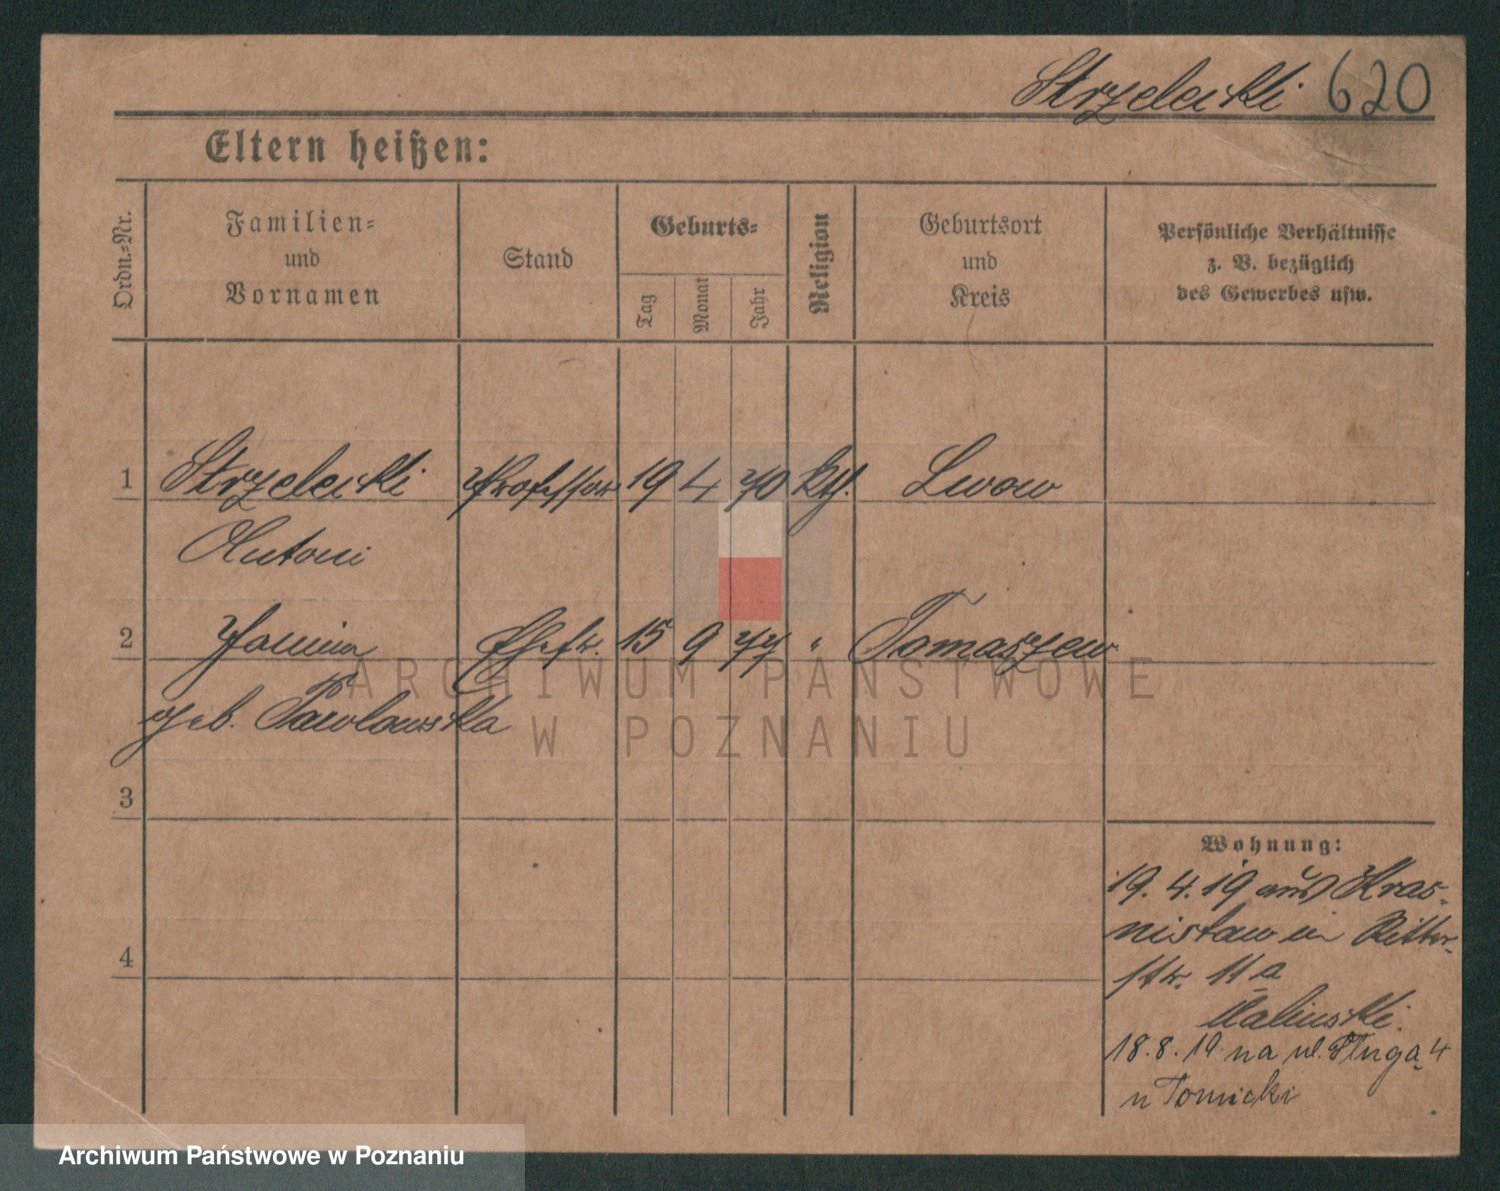 Strzelecki 620
Eltern heißen:
Ordn.-Nr.
Familien-
und
Vornamen
Stand
Geburts-
Tag
Monat
Jahr
Religion
Geburtsort
und
Kreis
Persönliche Verhältnisse
z. B. bezüglich
des Gewerbes usw.
1 Strzelecki Professor 19 4 70 kth. Lwow
Antoni
2 Janina Ehefr. 15 9 77 " Tomaszew
geb. Pawlowska
3
4
Wohnung:
19.4.19 aus Kras-
nistaw in Ritter-
str. 11a
Kalinski.
18.8.19 na ul. Długa 4
u Tomicki
ARCHIWUM PAŃSTWOWE
W POZNANIU
Archiwum Państwowe w Poznaniu